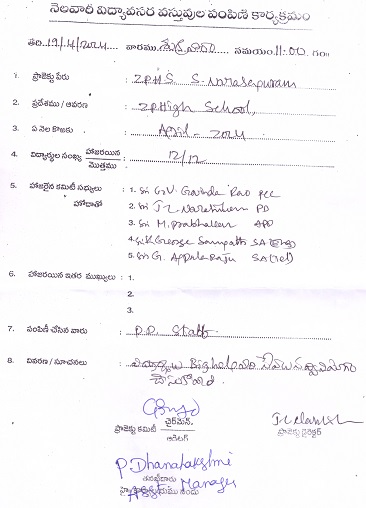 నెలవారీ విద్యావసర వస్తువుల పంపిణీ కార్యక్రమం
తేది. 19/4/2024 వారము. శుక్రవారం సమయం. 11:00 గం॥
1. ప్రాజెక్టు పేరు : ZPHS S. Narasapuram
2. ప్రదేశము / ఆవరణ : Z.P High School,
3. ఏ నెల కొఱకు : April - 2024
4. విద్యార్థుల సంఖ్య హాజరయిన / మొత్తము : 12/12
5. హాజరైన కమిటీ సభ్యులు : 1. Sri G.V. Govinda Rao PCC
హోదాతో 2. Sri PD
3. Sri M. Prabhakar APO
4. Sri K George Sampath SA (Eng)
5. Sri G. Appala Raju SA (Tel)
6. హాజరయిన ఇతర ముఖ్యులు : 1.
2.
3.
7. పంపిణీ చేసిన వారు : P.D. Staff
8. వివరణ / సూచనలు :
ప్రాజెక్టు కమిటీ చైర్మన్ / ఆడిటర్
ప్రాజెక్టు డైరెక్టర్
P. Dhanalakshmi
Manager